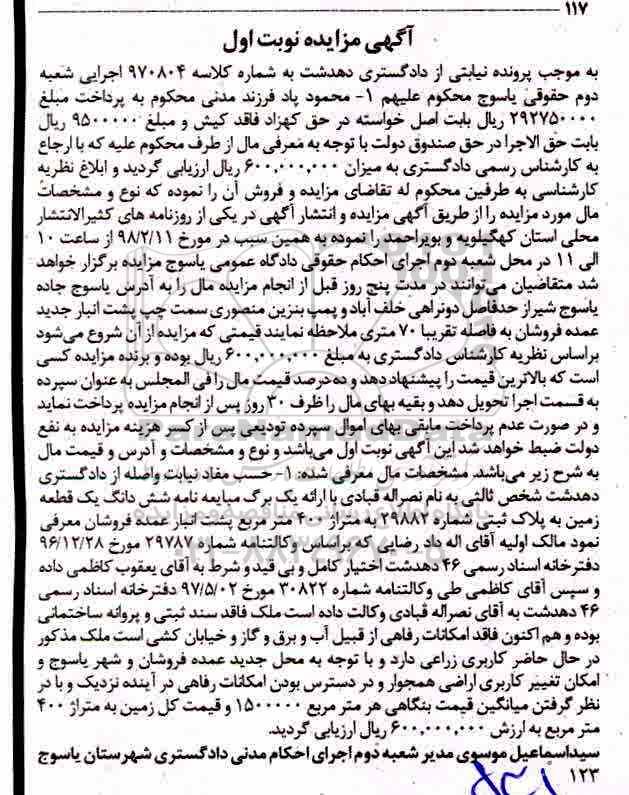 ۱۱۷
آگهی مزایده نوبت اول
به موجب پرونده نیابتی از دادگستری دهدشت به شماره کلاسه ۹۷۰۸۰۴ اجرایی شعبه
دوم حقوقی یاسوج محکوم علیهم ۱- محمود پاد فرزند مدنی محکوم به پرداخت مبلغ
۲۹۲۷۵۰۰۰۰ ریال بابت اصل خواسته در حق کهزاد فاقد کیش و مبلغ ۹۵۰۰۰۰۰ ریال
بابت حق الاجرا در حق صندوق دولت با توجه به معرفی مال از طرف محکوم علیه که با ارجاع
به کارشناس رسمی دادگستری به میزان ۶۰۰,۰۰۰,۰۰۰ ریال ارزیابی گردید و ابلاغ نظریه
کارشناسی به طرفین محکوم له تقاضای مزایده و فروش آن را نموده که نوع و مشخصات
مال مورد مزایده را از طریق آگهی مزایده و انتشار آگهی در یکی از روزنامه های کثیرالانتشار
محلی استان کهگیلویه و بویراحمد را نموده به همین سبب در مورخ ۹۸/۲/۱۱ از ساعت ۱۰
الی ۱۱ در محل شعبه دوم اجرای احکام حقوقی دادگاه عمومی یاسوج مزایده برگزار خواهد
شد متقاضیان می‌توانند در مدت پنج روز قبل از انجام مزایده مال را به آدرس یاسوج جاده
یاسوج شیراز حدفاصل دوتراهی خلف آباد و پمپ بنزین منصوری سمت چپ پشت انبار جدید
عمده فروشان به فاصله تقریبا ۷۰ متری ملاحظه نمایند قیمتی که مزایده از آن شروع می‌شود
براساس نظریه کارشناس دادگستری به مبلغ ۶۰۰,۰۰۰,۰۰۰ ریال بوده و برنده مزایده کسی
است که بالاترین قیمت را پیشنهاد دهد و ده درصد قیمت مال را فی المجلس به عنوان سپرده
به قسمت اجرا تحویل دهد و بقیه بهای مال را ظرف ۳۰ روز پس از انجام مزایده پرداخت نماید
و در صورت عدم پرداخت مابقی بهای اموال سپرده تودیعی پس از کسر هزینه مزایده به نفع
دولت ضبط خواهد شد این آگهی نوبت اول می‌باشد و نوع و مشخصات و آدرس و قیمت مال
به شرح زیر می‌باشد. مشخصات مال معرفی شده: ۱- حسب مفاد نیابت واصله از دادگستری
دهدشت شخص ثالثی به نام نصراله قبادی با ارائه یک برگ مبایعه نامه شش دانگ یک قطعه
زمین به پلاک ثبتی شماره ۲۹۸۸۲ به متراژ ۴۰۰ متر مربع پشت انبار عمده فروشان معرفی
نمود مالک اولیه آقای اله داد رضایی که براساس وکالتنامه شماره ۲۹۷۸۷ مورخ ۹۶/۱۲/۲۸
دفترخانه اسناد رسمی ۴۶ دهدشت اختیار کامل و بی قید و شرط به آقای یعقوب کاظمی داده
و سپس آقای کاظمی طی وکالتنامه شماره ۳۰۸۲۲ مورخ ۹۷/۵/۰۲ دفترخانه اسناد رسمی
۴۶ دهدشت به آقای نصراله قبادی وکالت داده است ملک فاقد سند ثبتی و پروانه ساختمانی
بوده و هم اکنون فاقد امکانات رفاهی از قبیل آب و برق و گاز و خیابان کشی است ملک مذکور
در حال حاضر کاربری زراعی دارد و با توجه به محل جدید عمده فروشان و شهر یاسوج و
امکان تغییر کاربری اراضی همجوار و در دسترس بودن امکانات رفاهی در آینده نزدیک و با در
نظر گرفتن میانگین قیمت بنگاهی هر متر مربع ۱۵۰۰۰۰۰ و قیمت کل زمین به متراژ ۴۰۰
متر مربع به ارزش ۶۰۰,۰۰۰,۰۰۰ ریال ارزیابی گردید.
سیداسماعیل موسوی مدیر شعبه دوم اجرای احکام مدنی دادگستری شهرستان یاسوج
۱۲۳